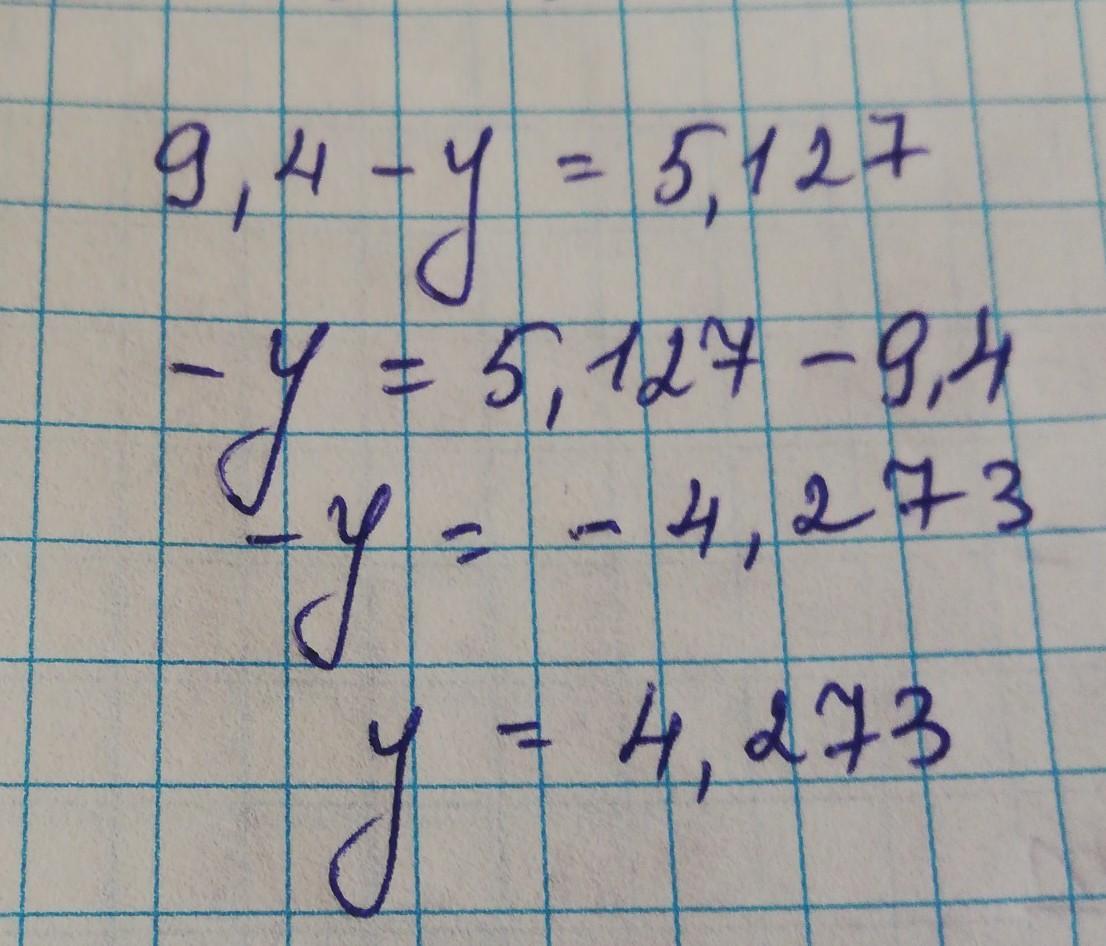 9,4 - y = 5,127
- y = 5,127 - 9,4
- y = - 4,273
y = 4,273